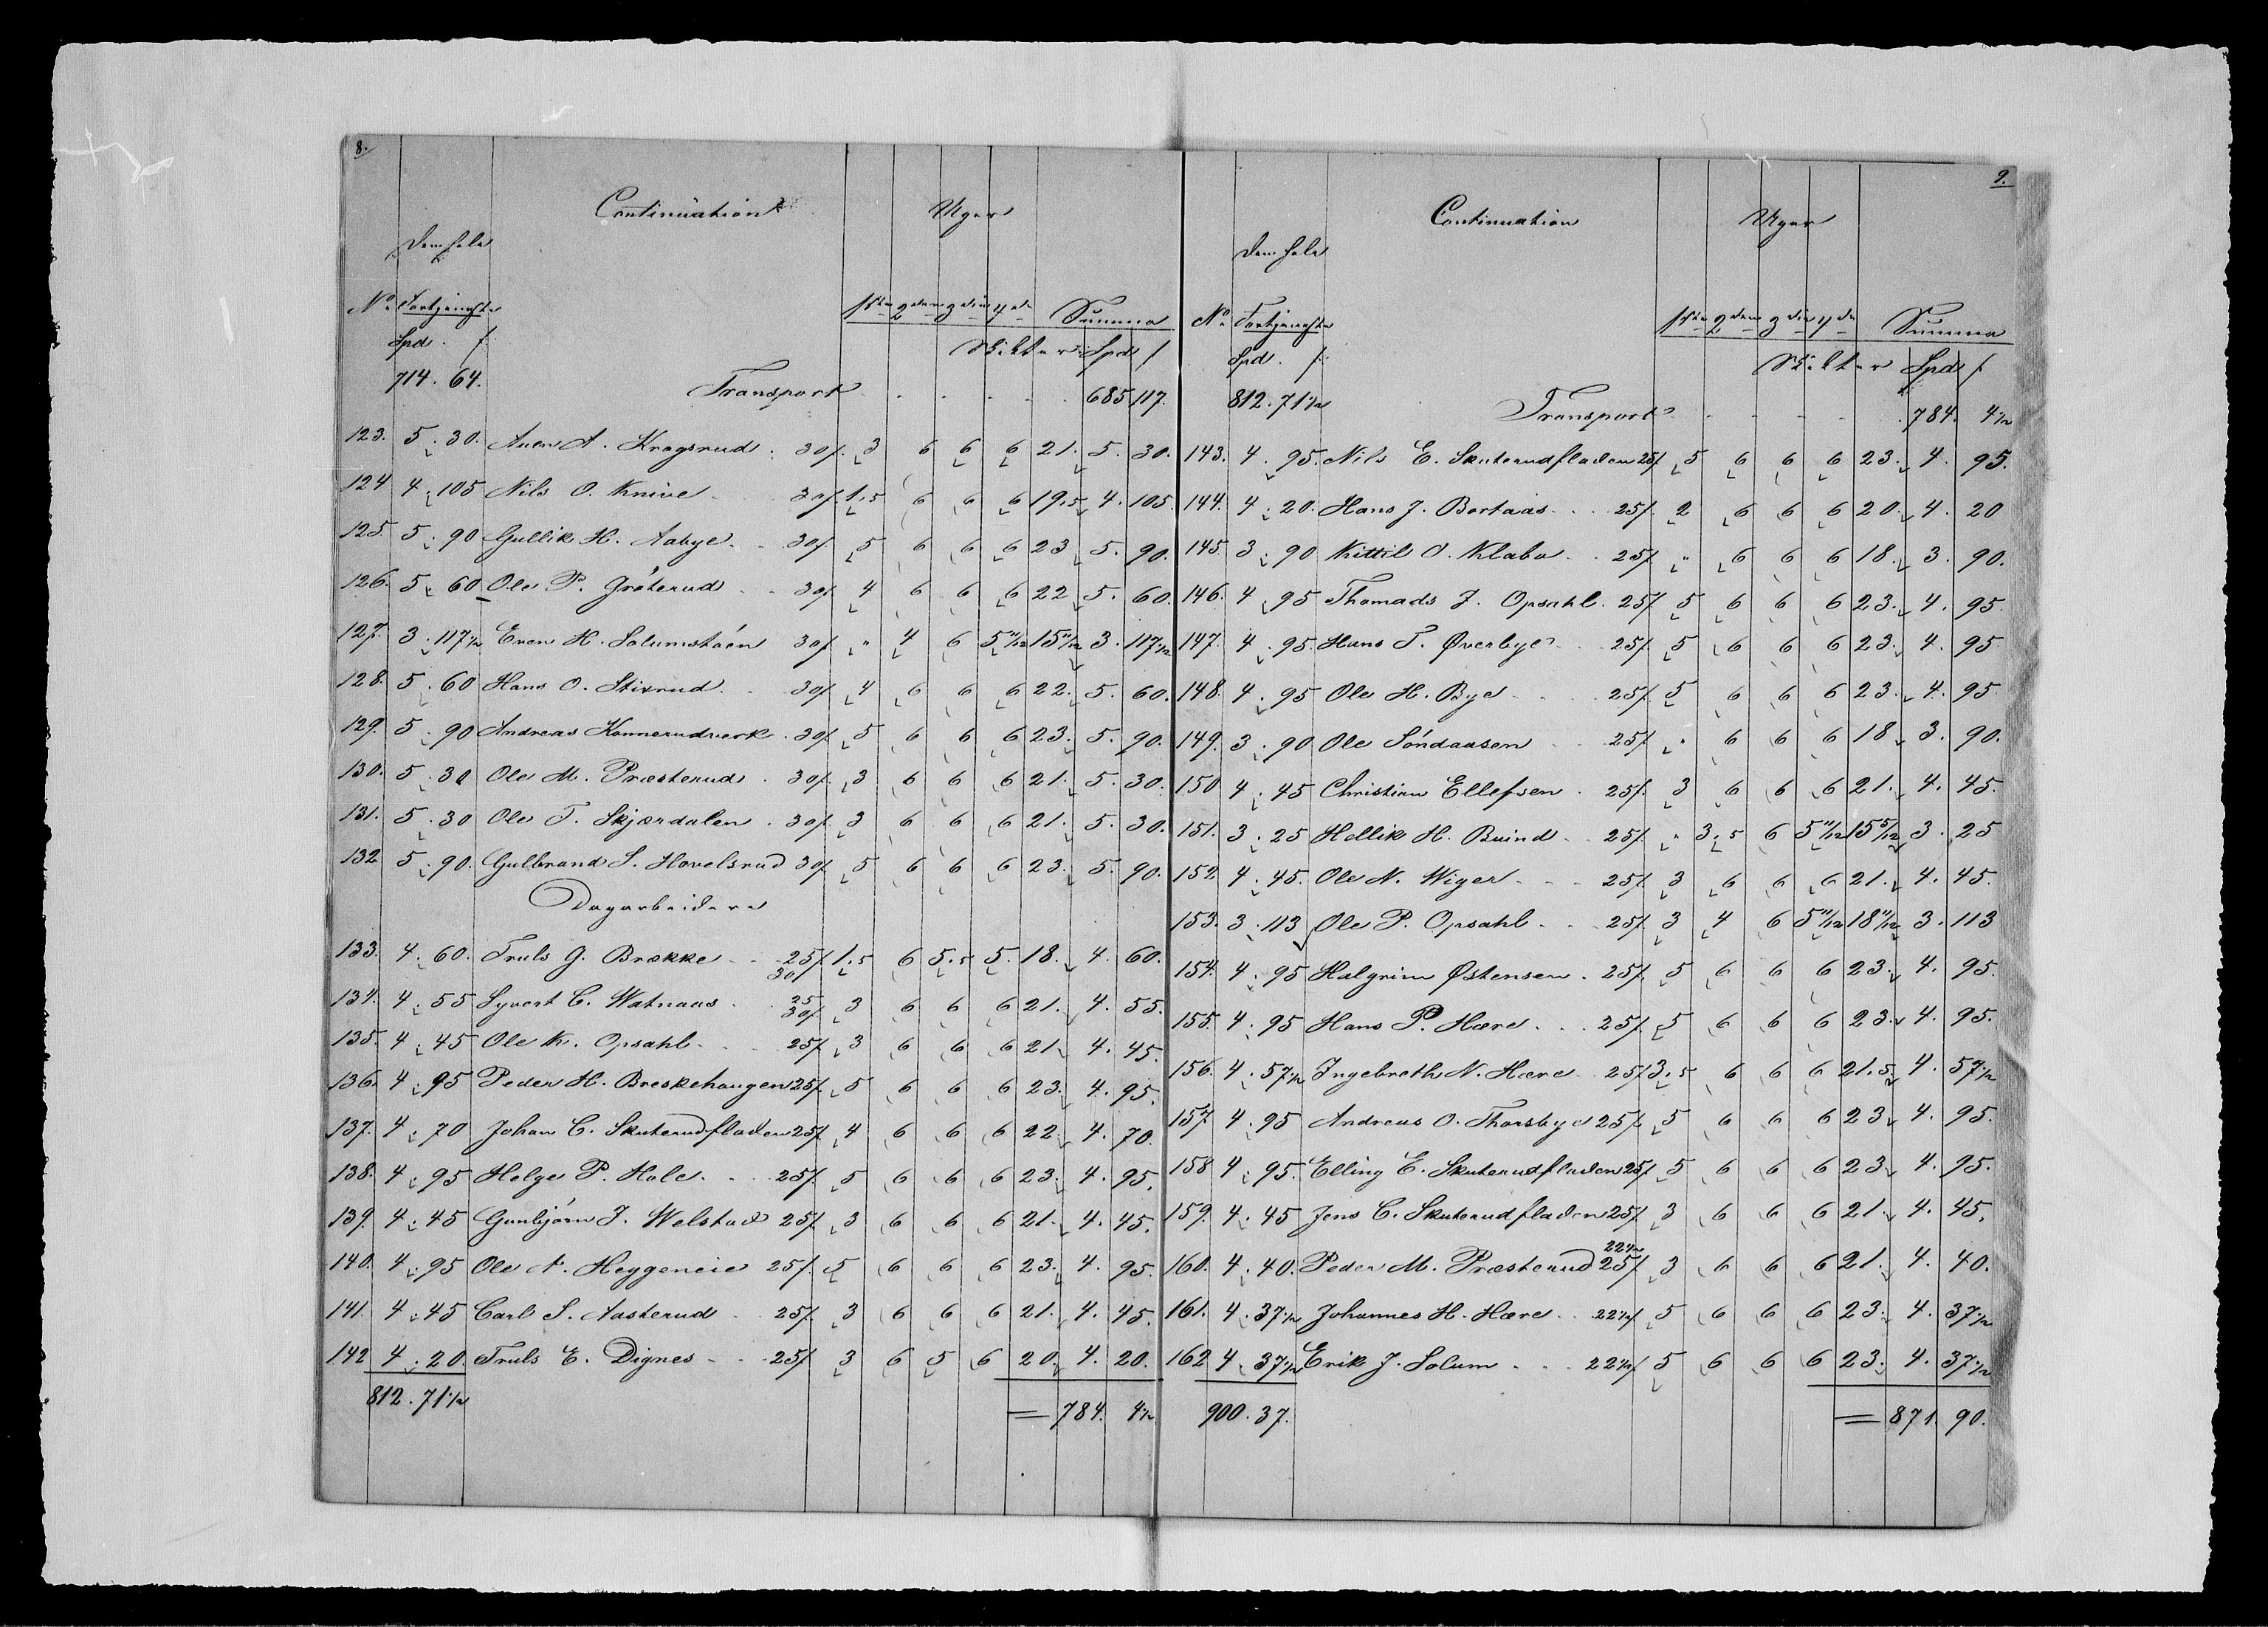 8.
Continuation Uger
Den hele
No Fortjeneste 1ste 2den 3die 4de Summa
Spd. ſ: Skikter Spd ſ
714. 64. Transport . . . . . 685 117.
123. 5. 30. Auen A. Kragsrud . 30ſ. 3 6 6 6 21. 5. 30.
124 4. 105 Nils O. Knive 30ſ. 1.5 6 6 6 19.5 4. 105.
125. 5. 90 Gullik H. Aabye. 30ſ. 5 6 6 6 23 5. 90.
126. 5. 60 Ole P. Gröterud 30ſ 4 6 6 6 22 5. 60.
127. 3. 117½ Even H. Solumstöen 30ſ " 4 6 5 11/12 15 11/12 3. 117½
128. 5. 60 Hans O. Stixrud. 30ſ. 4 6 6 6 22. 5. 60.
129. 5. 90 Andreas Konnerudverk . 30ſ. 5 6 6 6 23. 5. 90.
130. 5. 30 Ole M. Præsterud . 30ſ. 3 6 6 6 21. 5. 30.
131. 5. 30 Ole T. Skjærdalen . 30ſ. 3 6 6 6 21. 5. 30.
132 5. 90. Gulbrand S. Hovelsrud 30ſ. 5 6 6 6 23. 5. 90.
Dagarbeidere
133. 4. 60. Truls G. Brække 25ſ. 30ſ 1.5 6 5.5 5. 18. 4. 60.
134. 4. 55 Syvert C. Watnaas 25 30ſ. 3 6 6 6 21. 4. 55.
135. 4. 45 Ole K. Opsahl. 25ſ. 3 6 6 6 21. 4. 45.
136. 4. 95 Peder H. Breskehaugen 25ſ. 5 6 6 6 23. 4. 95.
137. 4. 70 Johan C. Skuterudfladen 25ſ. 4 6 6 6 22. 4. 70.
138. 4. 95 Helge P. Hole. 25ſ. 5 6 6 6 23. 4. 95.
139. 4. 45 Gunbjörn J. Welstad 25ſ. 3 6 6 6 21. 4. 45.
140. 4. 95 Ole A. Heggeneie 25ſ. 5 6 6 6 23. 4. 95.
141. 4. 45 Carl S. Aasterud 25ſ. 3 6 6 6 21. 4. 45.
142 4. 20. Truls E. Dignes 25ſ 3 6 5 6 20. 4. 20.
812. 71½ = 784. 4½
9.
Continuation Uger
Den hele
No Fortjeneste 1ste 2den 3die 4de Summa
Spd. ſ: Skikter Spd ſ
812. 71½ Transport . . . . 784. 4½
143. 4. 95. Nils E. Skuterudfladen 25ſ 5 6 6 6 23. 4. 95.
144. 4. 20. Hans J. Bortaas. 25ſ. 2 6 6 6 20. 4. 20
145. 3. 90 Kittil O. Klabo 25ſ. " 6 6 6 18. 3. 90.
146. 4. 95 Thomads J. Opsahl. 25ſ. 5 6 6 6 23. 4. 95.
147. 4. 95. Hans T. Øverbye 25ſ. 5 6 6 6 23. 4. 95
148. 4. 95 Ole H. Bye 25ſ. 5 6 6 6 23. 4. 95
149. 3. 90 Ole Söndaasen 25ſ. " 6 6 6 18 3. 90.
150 4. 45 Christian Ellefsen . 25ſ. 3 6 6 6 21. 4. 45.
151. 3. 25 Hellik H. Buind 25ſ. " 3.5 6 5 11/12 15 5/12 3. 25
152. 4. 45. Ole N. Wiger 25ſ. 3 6 6 6 21. 4. 45.
153. 3. 113 Ole P. Opsahl. 25ſ. 3 4 6 5 11/12 18 11/12 3. 113
154. 4. 95 Halgrim Østensen . 25ſ. 5 6 6 6 23. 4. 95.
155. 4. 95 Hans P. Hære. 25ſ. 5 6 6 6 23. 4. 95.
156. 4. 57½ Ingebreth N. Hære 25ſ 3.5 6 6 6 21.5. 4. 57½
157 4. 95 Andreas O. Thorsbye 25ſ. 5 6 6 6 23 4. 95.
158 4. 95. Elling E. Skuterudfladen 25ſ. 5 6 6 6 23. 4. 95.
159. 4. 45 Jens C. Skuterudfladen 25ſ. 3 6 6 6 21. 4. 45.
160. 4. 40. Peder M. Præsterud 22½ 25ſ. 3 6 6 6 21. 4. 40.
161. 4. 37½ Johannes H. Hære 22½ſ. 5 6 6 6 23. 4. 37½
162 4. 37½ Erik J. Solum 22½ſ. 5 6 6 6 23. 4. 37½
900. 37. = 871. 90.